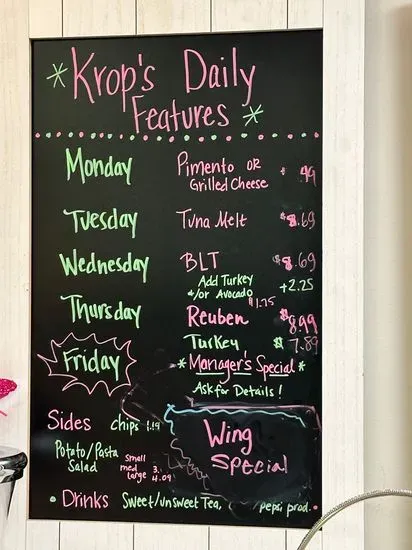 Krop's Daily
Features
Monday Pimento OR
Grilled Cheese 99
Tuesday Tuna Melt $8.69
Wednesday BLT $8.69
Add Turkey +2.25
&/or Avocado $1.75
Thursday Reuben $8.99
Turkey $7.89
Friday *Manager's Special*
Ask for Details!
Sides Chips 1.19
Potato/Pasta
Salad
Small
med 3.
large 4.09
Wing
Special
• Drinks Sweet/unsweet Tea, pepsi prod.